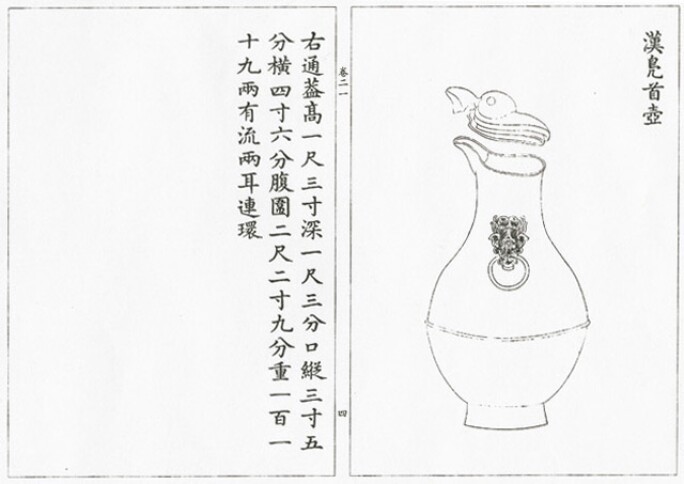 漢鳧首壺
卷二一
四
右通葢髙一尺三寸深一尺三分口縱三寸五
分橫四寸六分腹圍二尺二寸九分重一百一
十九兩有流兩耳連環